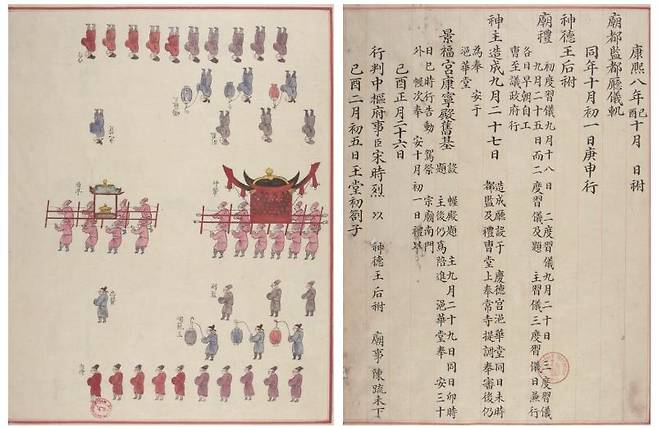 康熙八年己酉十月 日祔
廟都監都廳儀軌
同年十月初一日庚申行
神德王后祔
廟禮 初度習儀九月十八日 二度習儀九月二十日 三度習儀
九月二十五日而二度習儀及題 主習儀三度習儀日兼行
各日早朝自工
曹至議政府行
神主造成九月二十七日 造成廳設于 慶德宮浥華堂同日未時
都監及禮曹堂上奉常寺提調奉審後仍
為奉 安于
浥華堂
景福宮康寧殿舊基 設 幄殿題 主九月二十九日同日卯時
題 主後仍爲陪進 浥華堂奉 安三十
日巳時行告動 駕祭 宗廟南門
外 幄次奉 安十月初一日禮畢
己酉正月二十六日
行判中樞府事臣宋時烈 以 神德王后祔 廟事陳疏未下
己酉二月初五日玉堂初劄子